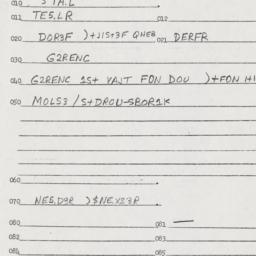 010 STA.L
011 TES.LR 012
020 DOR3F )+JIS+3F QNEB 021 DERFR
030 G2RENC
040 G2RENC 1S+ VAJT FON DOU )+FON HI
050 MOLS3/S+DROU-SBOR1K
060
070 NES.D9R )$NEX23R
080 081 —
082 083
084 085